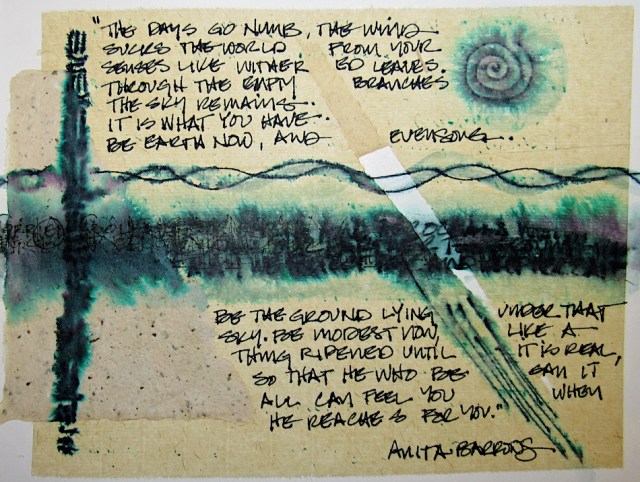 "THE DAYS GO NUMB, THE WIND
SUCKS THE WORLD FROM YOUR
SENSES LIKE WITHER ED LEAVES.
THROUGH THE EMPTY BRANCHES
THE SKY REMAINS.
IT IS WHAT YOU HAVE.
BE EARTH NOW, AND EVENSONG.
BE THE GROUND LYING UNDER THAT
SKY. BE MODEST NOW, LIKE A
THING RIPENED UNTIL IT IS REAL,
SO THAT HE WHO BE GAN IT
ALL CAN FEEL YOU WHEN
HE REACHES FOR YOU."
ANITA BARROWS